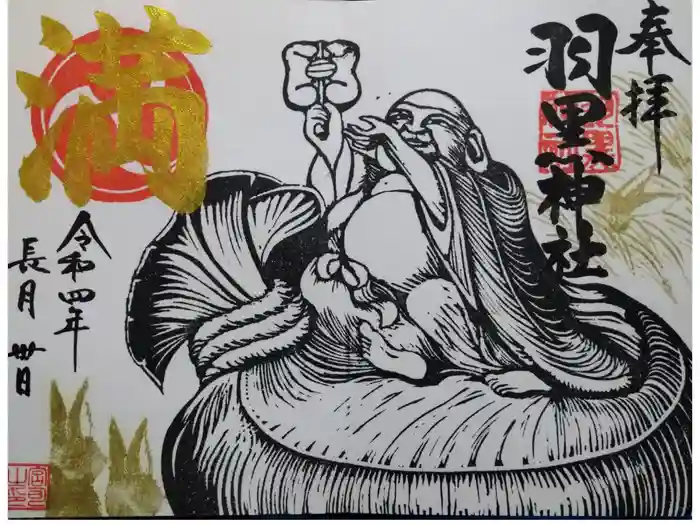 奉拝
羽黒神社
満
令和四年
長月 卅日